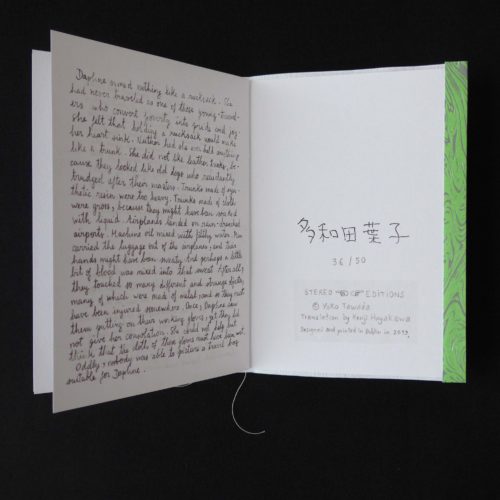 Daphne owned nothing like a rucksack. She
had never traveled as one of those young travel-
ers who convert poverty into pride and joy.
she felt that holding a rucksack would make
her heart sink. Neither had she ever held anything
like a trunk. She did not like leather trunks, be-
cause they looked like old dogs who reluctantly
trudged after their masters. Trunks made of syn-
thetic resin were too heavy. Trunks made of cloth
were gross, because they might have been soaked
with liquid. Airplanes landed on rain-drenched
airports. Machine oil mixed with filthy water. Men
carried the luggage out of the airplanes, and their
hands might have been sweaty. And perhaps a little
bit of blood was mixed into that sweat. After all,
they touched so many different and strange objects,
many of which were made of metal, and so they must
have been injured somewhere. Once, Daphne saw
them putting on their working gloves, yet they did
not give her consolation. She could not help but
think that the cloth of these gloves must have been wet.
Oddly, nobody was able to picture a travel bag
suitable for Daphne.
多和田葉子
36/50
STEREO EDITIONS
© Yoko Tawada
Translation by Kenji Hayakawa
Designed and printed in Dublin in 2019